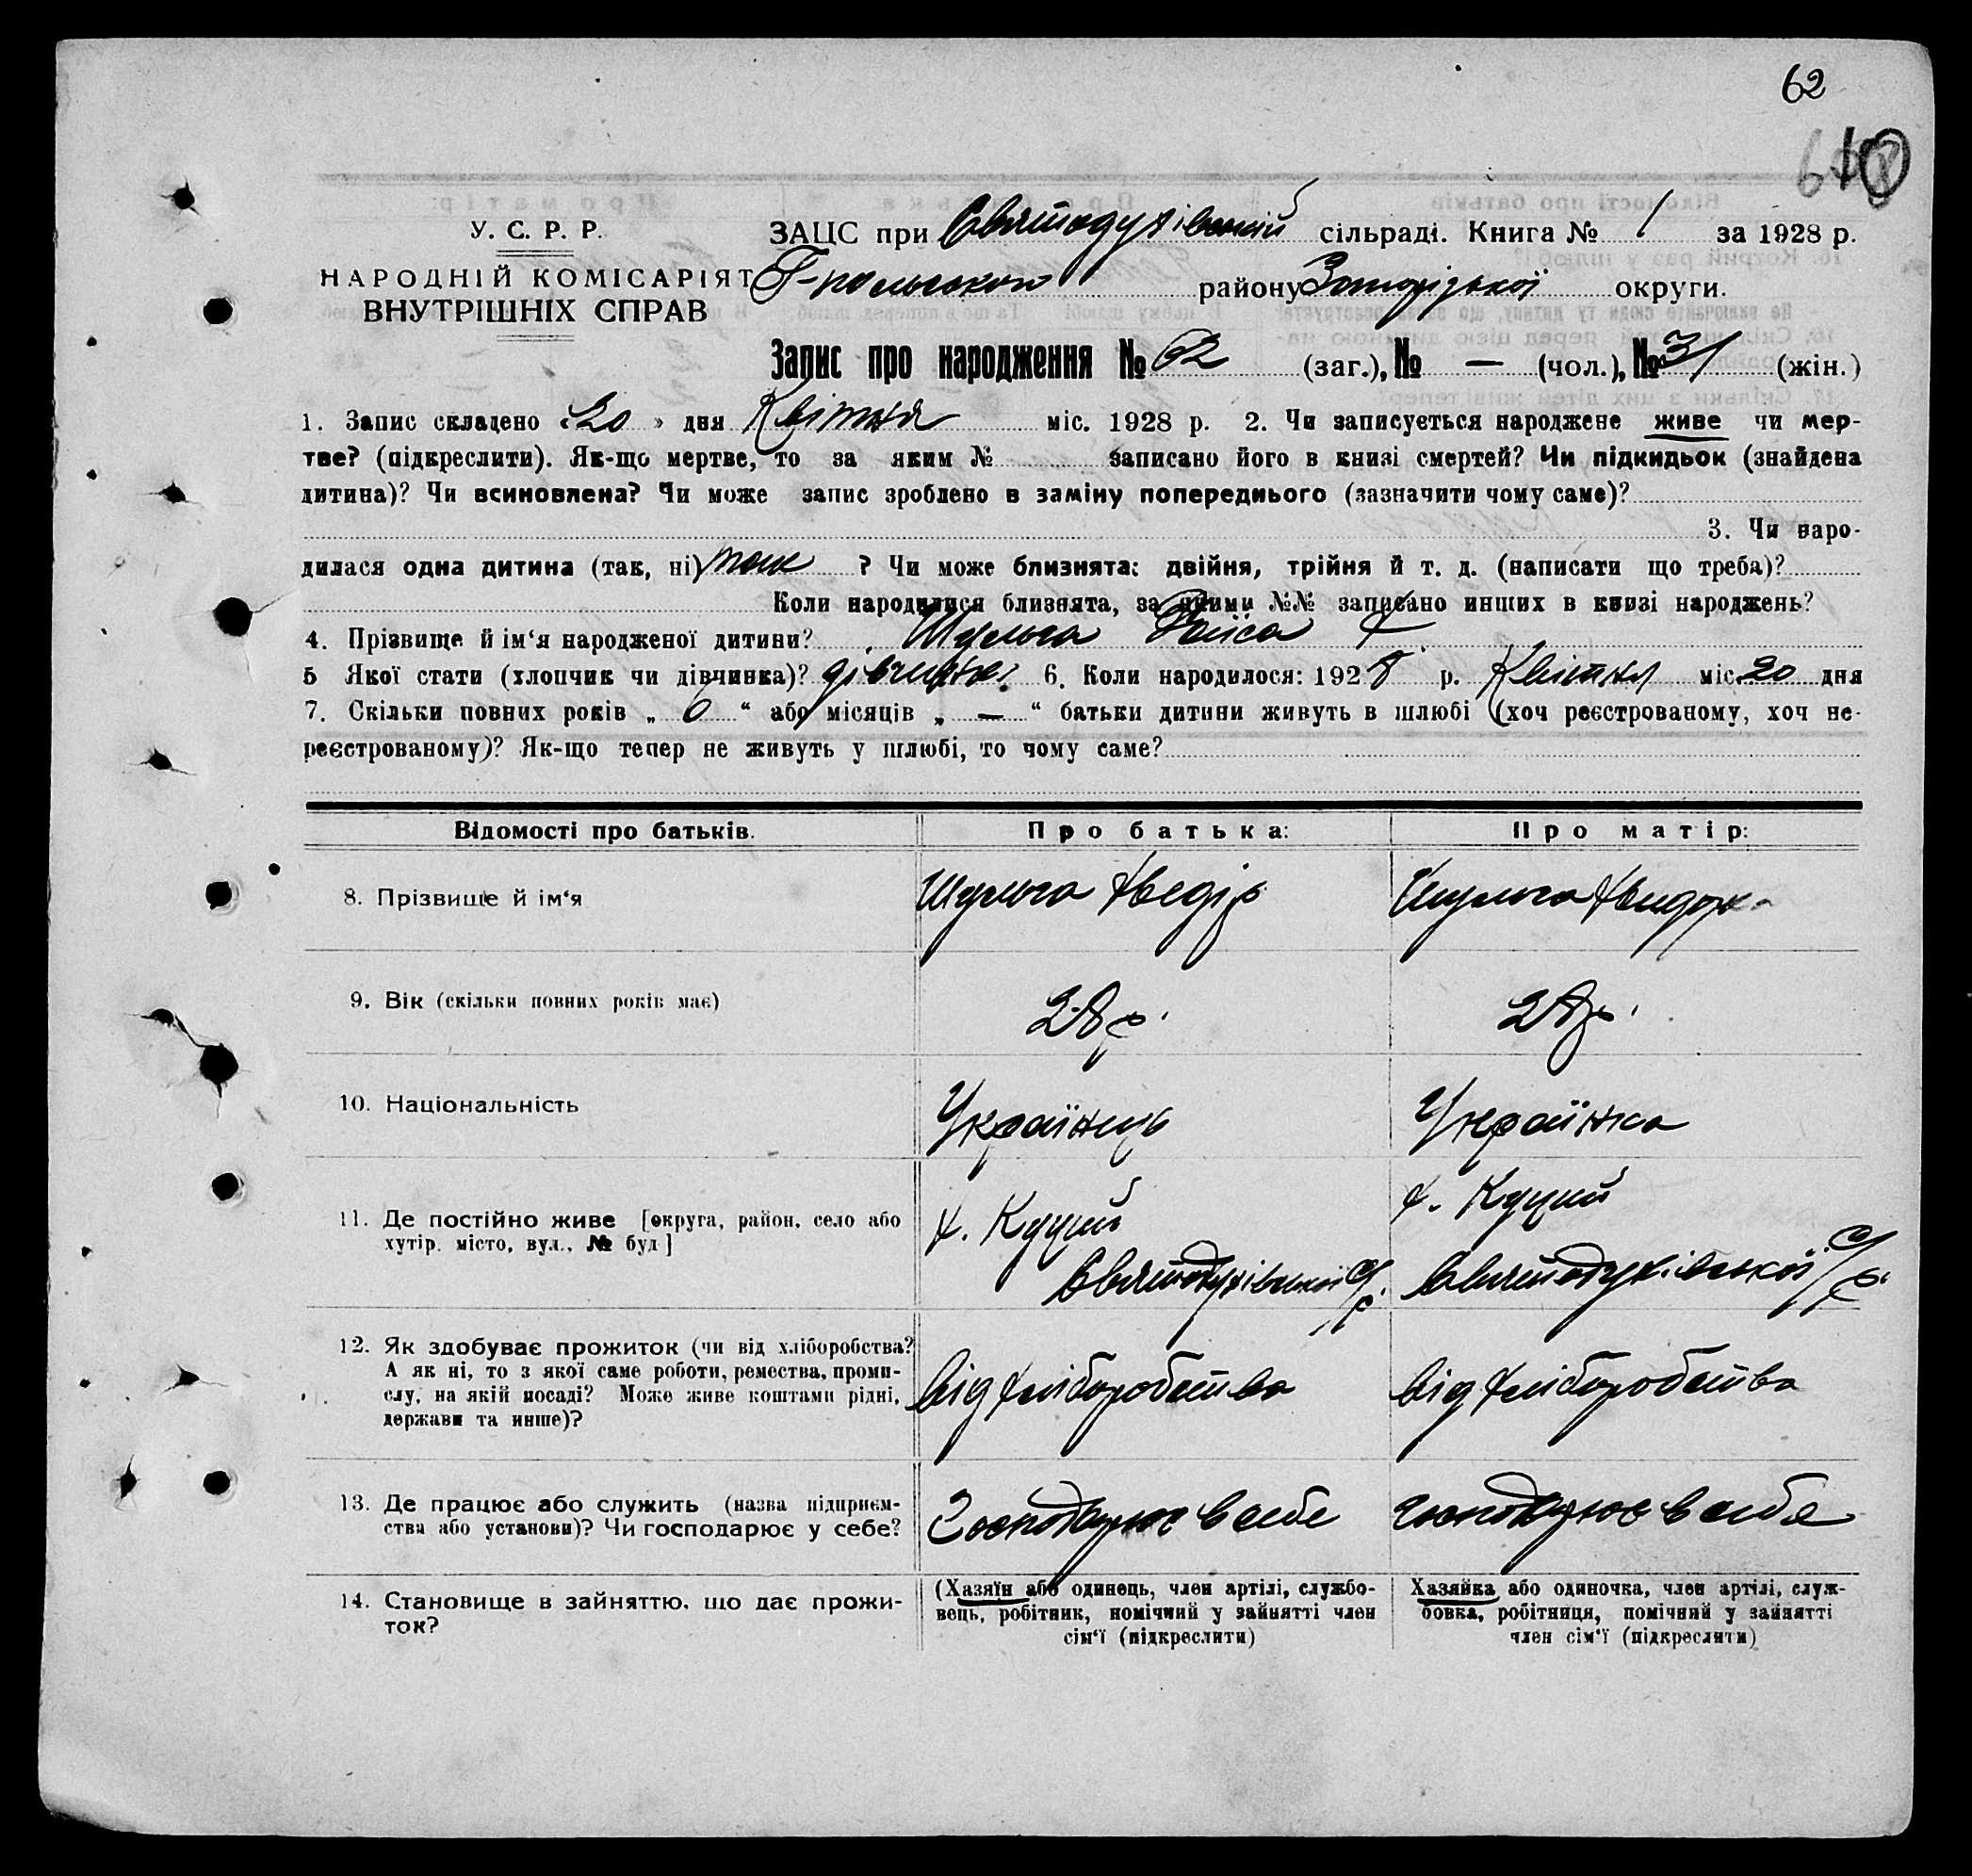 62
У. С. Р. Р.
НАРОДНІЙ КОМІСАРІЯТ
ВНУТРІШНІХ СПРАВ
ЗАЦС при Святодухівській сільраді. Книга № 1 за 1928 р.
району Запорізької округи.
Запис про народження № 62 (заг.), № — (чол.), № 31 (жін.)
1. Запис складено «20» дня Квітня міс. 1928 р. 2. Чи записується народжене живе чи мер-
тве? (підкреслити). Як-що мертве, то за яким № записано його в книзі смертей? Чи підкидьок (знайдена
дитина)? Чи всиновлена? Чи може запис зроблено в заміну попереднього (зазначити чому саме)?
3. Чи наро-
дилася одна дитина (так, ні) так ? Чи може близнята: двійня, трійня й т. д. (написати що треба)?
Коли народилися близнята, за якими №№ записано инших в книзі народжень?
4. Прізвище й ім'я народженої дитини? Шульга Раїса Х
5 Якої стати (хлопчик чи дівчинка)? дівчинка 6. Коли народилося: 1928 р. Квітня міс. 20 дня
7. Скільки повних років „ 6 “ або місяців „ — “ батьки дитини живуть в шлюбі (хоч реєстрованому, хоч не-
реєстрованому)? Як-що тепер не живуть у шлюбі, то чому саме?
Відомості про батьків. Про батька: Про матір:
8. Прізвище й ім'я Шульга Хведір Шульга Хвидорка
9. Вік (скільки повних років має) 28 р. 28 р.
10. Національність Українець Українка
11. Де постійно живе [округа, район, село або
хутір, місто, вул., № буд] х. Куций х. Куций
Святодухівської С/р. Святодухівської С/р.
12. Як здобуває прожиток (чи від хліборобства?
А як ні, то з якої саме роботи, ремества, проми-
слу, на якій посаді? Може живе коштами рідні,
держави та инше)? від хліборобства від хліборобства
13. Де працює або служить (назва підприєм-
ства або установи)? Чи господарює у себе? Господарює в себе господарює в себе
14. Становище в зайняттю, що дає прожи-
ток?
(Хазяїн або одинець, член артілі, службо-
вець, робітник, помічний у зайнятті член
сім'ї (підкреслити)
Хазяйка або одиночка, член артілі, служ-
бовка, робітниця, помічний у зайнятті
член сім'ї (підкреслити)